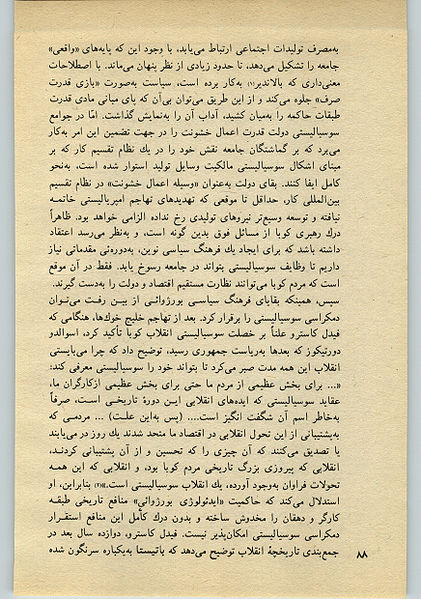 به‌مصرف تولیدات اجتماعی ارتباط می‌یابد، با وجود این که پایه‌های «واقعی»
جامعه را تشکیل می‌دهد، تا حدود زیادی از نظر پنهان می‌ماند. با اصطلاحات
معنی‌داری که بالاندیر(۱) به‌کار برده است، سیاست به‌صورت «بازی قدرت
صرف» جلوه می‌کند و از این طریق می‌توان بی‌آن که پای مبانی مادی قدرت
طبقات حاکمه را به‌میان کشید، آداب آن را به‌نمایش گذاشت. امّا در جوامع
سوسیالیستی دولت قدرت اعمال خشونت را در جهت تضمین این امر به‌کار
می‌برد که بر گماشتگان جامعه نقش خود را در یك نظام تقسیم کار که بر
مبنای اشکال سوسیالیستی مالکیت وسایل تولید استوار شده است، به‌نحو
کامل ایفا کنند. بقای دولت به‌عنوان «وسیله اعمال خشونت» در نظام تقسیم
بین‌المللی کار، حداقل تا موقعی که تهدیدهای تهاجم امپریالیستی خاتمه
نیافته و توسعه وسیع‌تر نیروهای تولیدی رخ نداده الزامی خواهد بود. ظاهراً
درك رهبری کوبا از مسائل فوق بدین گونه است، و به‌نظر می‌رسد اعتقاد
داشته باشد که برای ایجاد یك فرهنگ سیاسی نوین، به‌دوره‌ئی مقدماتی نیاز
داریم تا وظایف سوسیالیستی بتواند در جامعه رسوخ یابد. فقط در آن موقع
است که مردم کوبا می‌توانند نظارت مستقیم اقتصاد و دولت را به‌دست گیرند.
سپس، همینکه بقایای فرهنگ سیاسی بورژوائی از بین رفت می‌توان
دمکراسی سوسیالیستی را برقرار کرد. بعد از تهاجم خلیج خوك‌ها، هنگامی که
فیدل کاسترو علناً بر خصلت سوسیالیستی انقلاب کوبا تأکید کرد، اسوالدو
دورتیکوز که بعدها به‌ریاست جمهوری رسید، توضیح داد که چرا می‌بایستی
انقلاب این همه مدت صبر می‌کرد تا بتواند خود را سوسیالیستی معرفی کند:
«... برای بخش عظیمی از مردم ما حتی برای بخش عظیمی ازکارگران ما،
عقاید سوسیالیستی که ایده‌های انقلابی ایـن دورهٔ تاریخی است، صرفاً
به‌خاطر اسم آن شگفت انگیز است.... (پس به‌این علـت) ... مردمـی که
به‌پشتیبانی از این تحول انقلابی در اقتصاد ما متحد شدند یك روز در می‌یابند
یا تصدیق می‌کنند که آن چیزی را که تحسین و از آن پشتیبانی کردنـد،
انقلابی که پیروزی بزرگ تاریخی مردم کوبا بود، و انقلابی که این همه
تحولات فراوان به‌وجود آورده، یك انقلاب سوسیالیستی است.»(۲) بنابراین، او
استدلال می‌کند که حاکمیت «ایدئولوژی بورژوائی» منافع تاریخی طبقـه
کارگر و دهقان را مخدوش ساخته و بدون درك کامل این منافع استقـرار
دمکراسی سوسیالیستی امکان‌پذیر نیست. فیدل کاسترو، دوازده سال بعد در
جمع‌بندی تاریخچهٔ انقلاب توضیح می‌دهد که باتیستا به‌یکباره سرنگون شده
۸۸